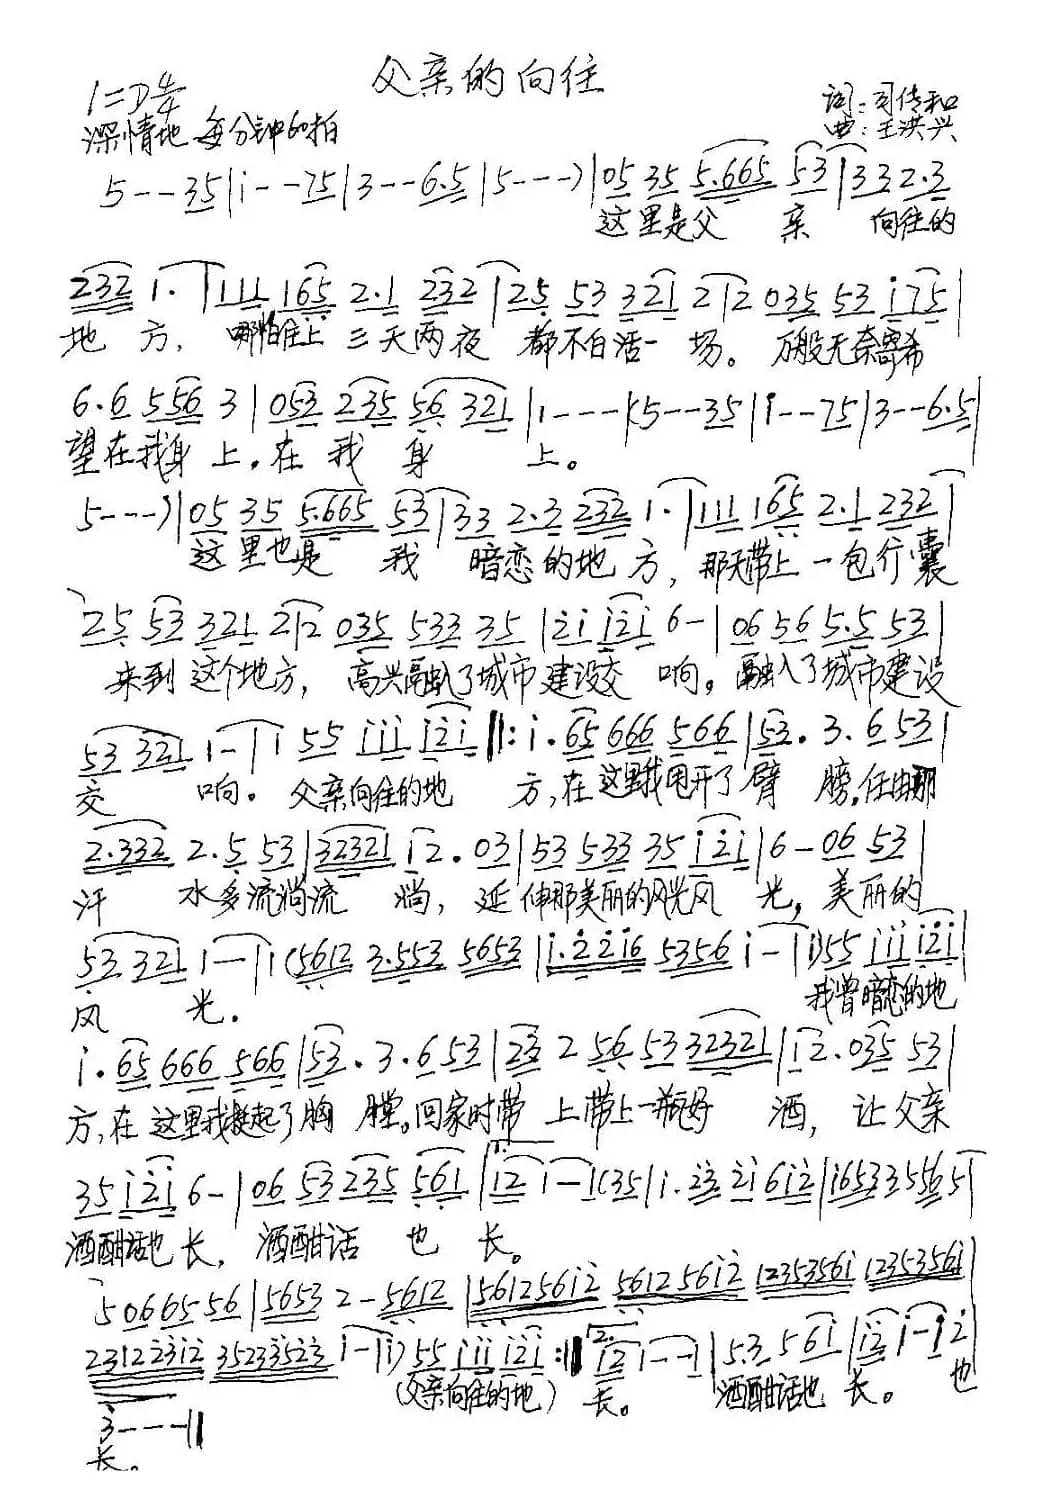 父亲的向往
1=D 4/4
词:司传和
深情地 每分钟60拍
曲:王洪兴
5---35|i--75|3---6.5|5---)|05 35 5.665 53|33 2.3
这里是父 亲 向往的
232 1.|111 165 2.1 232|25 53 321 2|2 035 53 i75|
地 方, 哪怕住上 三天两夜 都不白活一 场。 万般无奈寄希
6.6 556 3|053 235 56 321|1----|(5---35|i--75|3---6.5|
望在我身 上。在 我 身 上。
5---)|05 35 5.665 53|33 2.3 232 1.|111 165 2.1 232|
这里也是 我 暗恋的地 方, 那天带上 一包行囊
25 53 321 2|2 035 533 35|2i i2i 6-|06 56 5.5 53|
来到 这个地方, 高兴融入了城市建设交 响。融入了城市建设
53 321 1-|1 55 iii i2i ‖: i.65 666 566|53. 3.6 53|
交 响。 父亲向往的地 方,在 这里我甩开了臂 膀,任由那
2.332 2.5 53|32321 i2.03|53 533 35 i2i|6-06 53|
汗 水多流淌流 淌, 延伸那美丽的风光风 光,美丽的
53 321 1--|1(5612 3.553 5653|i.22i6 5356 i-|i)55 iii i2i|
风 光。 我曾暗恋的地
i.65 666 566|53.3.6 53|23 2 56 53 32321|i2.035 53|
方,在 这里我挺起了胸 膛。回家时带 上带上一瓶好 酒, 让父亲
35 i2i 6-|06 53 235 561|i2 i--|(35|i.23 2i 6i2|i6533556 5|
酒酣话也长, 酒酣话 也 长。
5 0665 56|5653 2-5612|561256i2 561256i2 1235356i 1235356i|
23122312 35233523 i-|i)55 iii i2i:‖ 2. i2 i---|5.3 56i|i2 i-i2|
(父亲向往的地) 长。 酒酣话也 长。 也
3----‖
长。